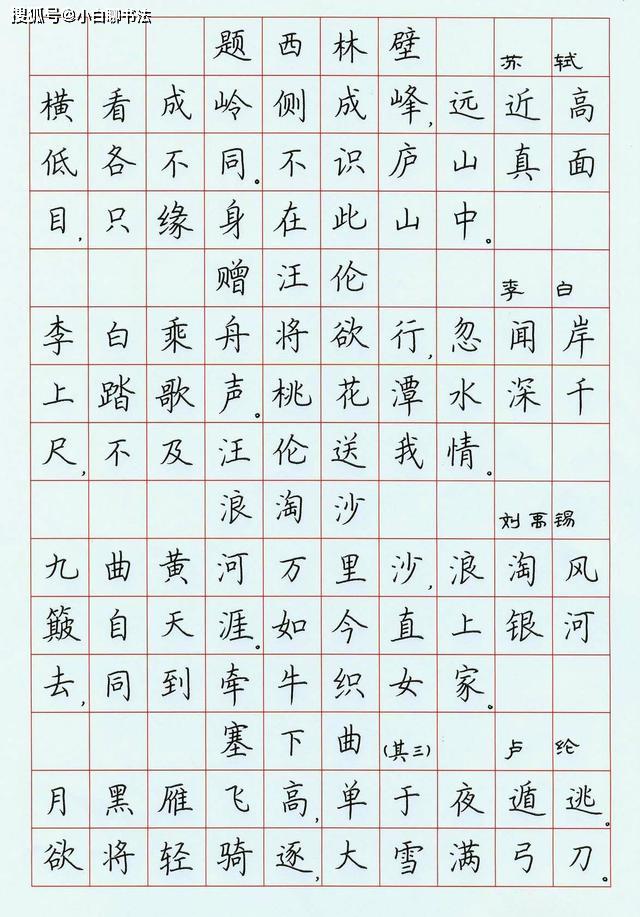 搜狐号@小白聊书法
题西林壁 苏轼
横看成岭侧成峰,远近高
低各不同。不识庐山真面
目,只缘身在此山中。
赠汪伦 李白
李白乘舟将欲行,忽闻岸
上踏歌声。桃花潭水深千
尺,不及汪伦送我情。
浪淘沙 刘禹锡
九曲黄河万里沙,浪淘风
簸自天涯。如今直上银河
去,同到牵牛织女家。
塞下曲(其三) 卢纶
月黑雁飞高,单于夜遁逃。
欲将轻骑逐,大雪满弓刀。